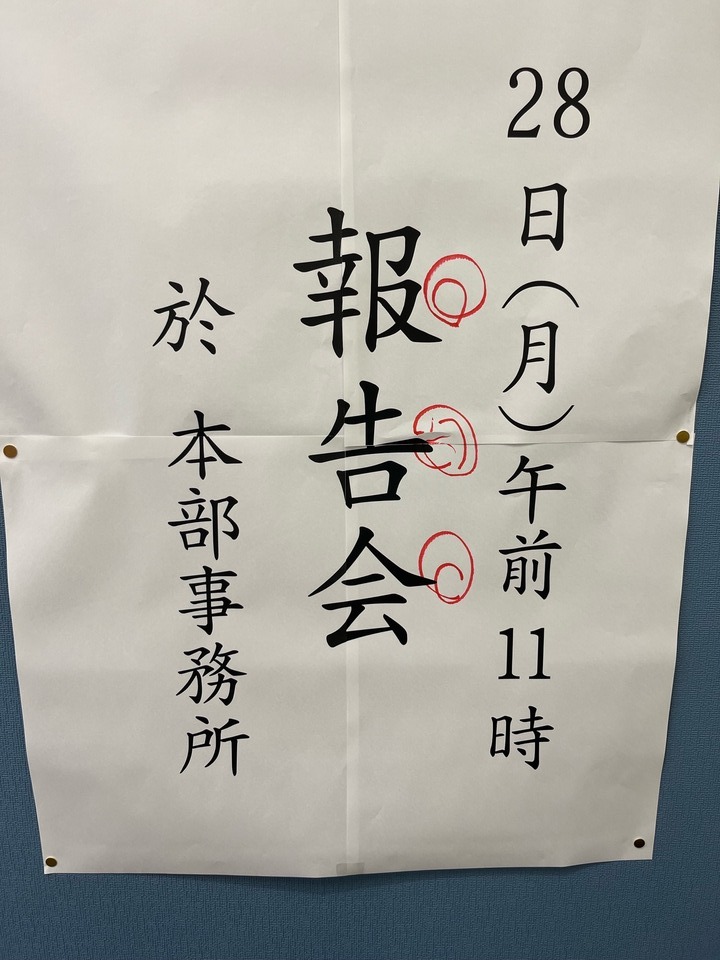 28日(月)午前11時
報告会
於 本部事務所